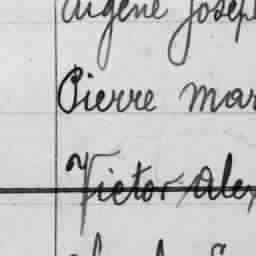 Eugène Josep
Pierre Mar
Victor Alex